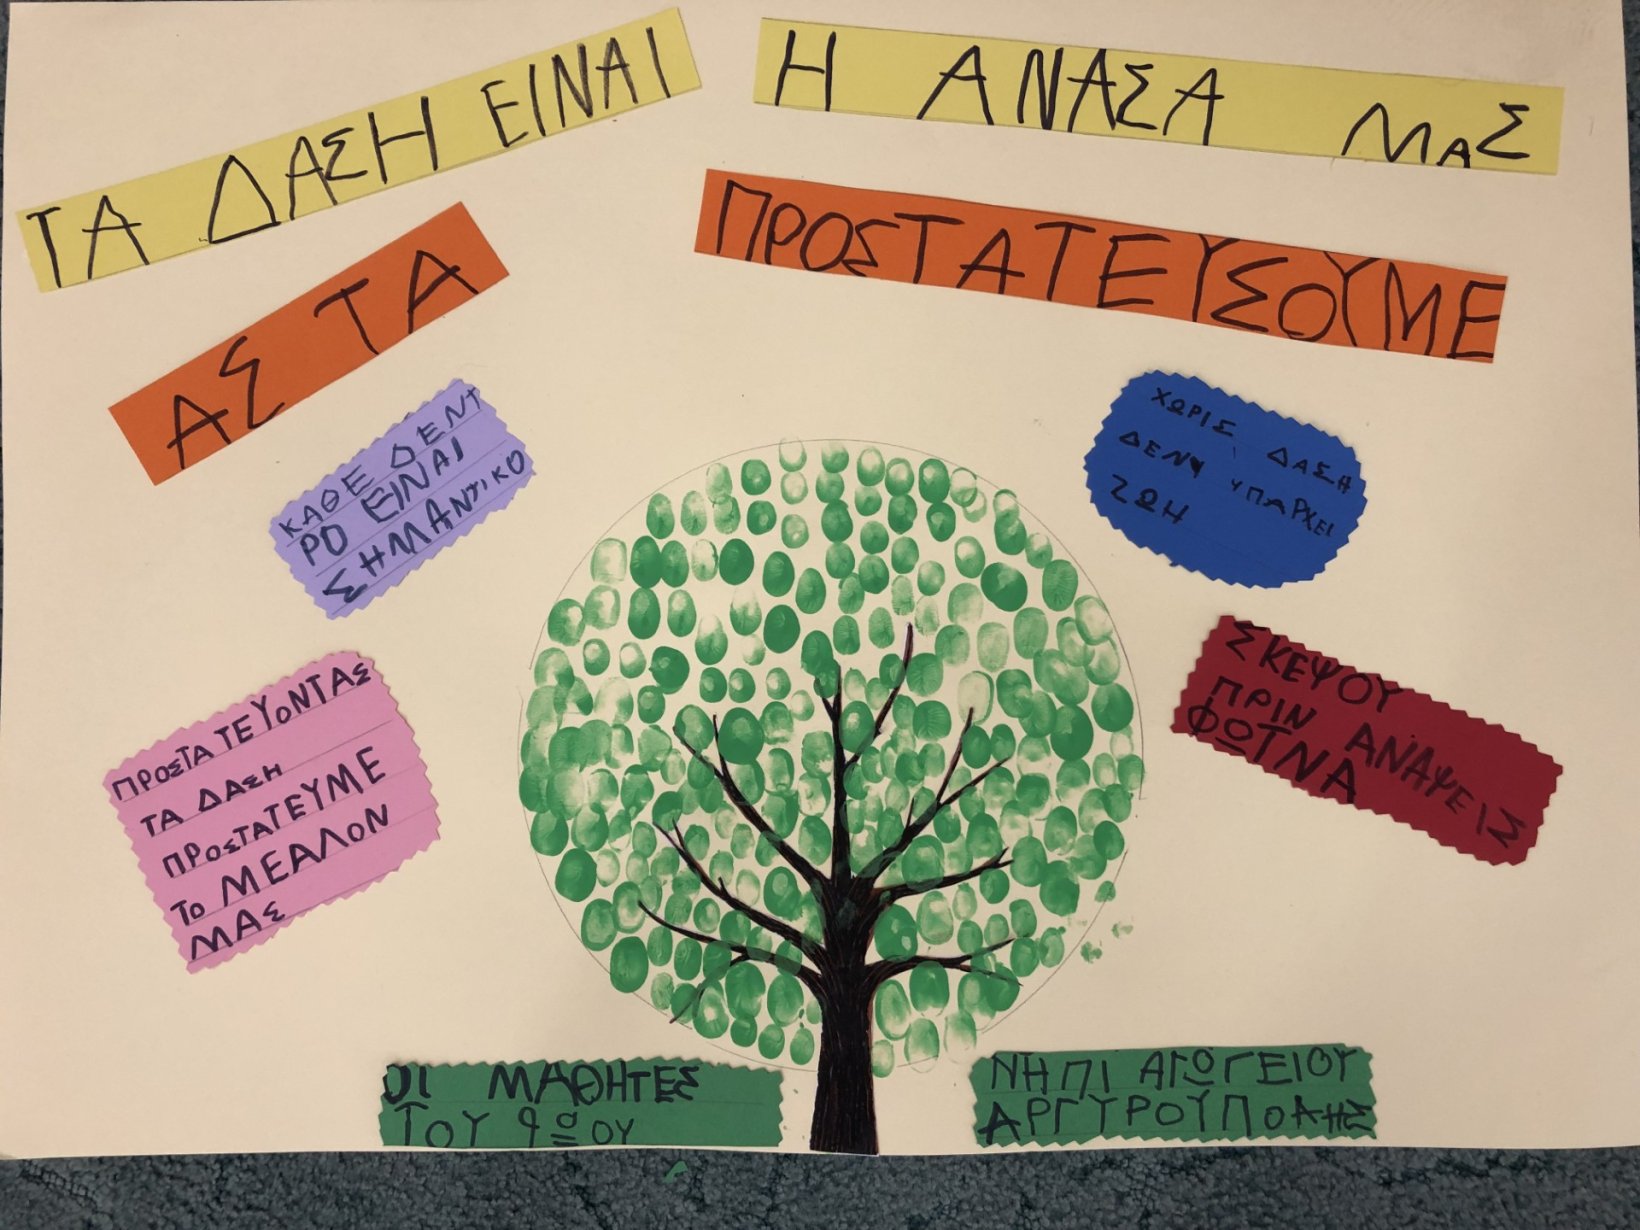 ΤΑ ΔΑΣΗ ΕΙΝΑΙ
Η ΑΝΑΣΑ ΜΑΣ
ΑΣ ΤΑ
ΠΡΟΣΤΑΤΕΥΣΟΥΜΕ
ΚΑΘΕ ΔΕΝΤ
ΡΟ ΕΙΝΑΙ
ΣΗΜΑΝΤΙΚΟ
ΧΩΡΙΣ ΔΑΣΗ
ΔΕΝ ΥΠΑΡΧΕΙ
ΖΩΗ
ΠΡΟΣΤΑΤΕΥΟΝΤΑΣ
ΤΑ ΔΑΣΗ
ΠΡΟΣΤΑΤΕΥΜΕ
ΤΟ ΜΕΑΛΟΝ
ΜΑΣ
ΣΚΕΨΟΥ
ΠΡΙΝ ΑΝΑΨΕΙΣ
ΦΩΤΝΑ
ΟΙ ΜΑΘΗΤΕΣ
ΤΟΥ
ΝΗΠΙΑΓΩΓΕΙΟΥ
ΑΡΓΥΡΟΥΠΟΛΗΣ